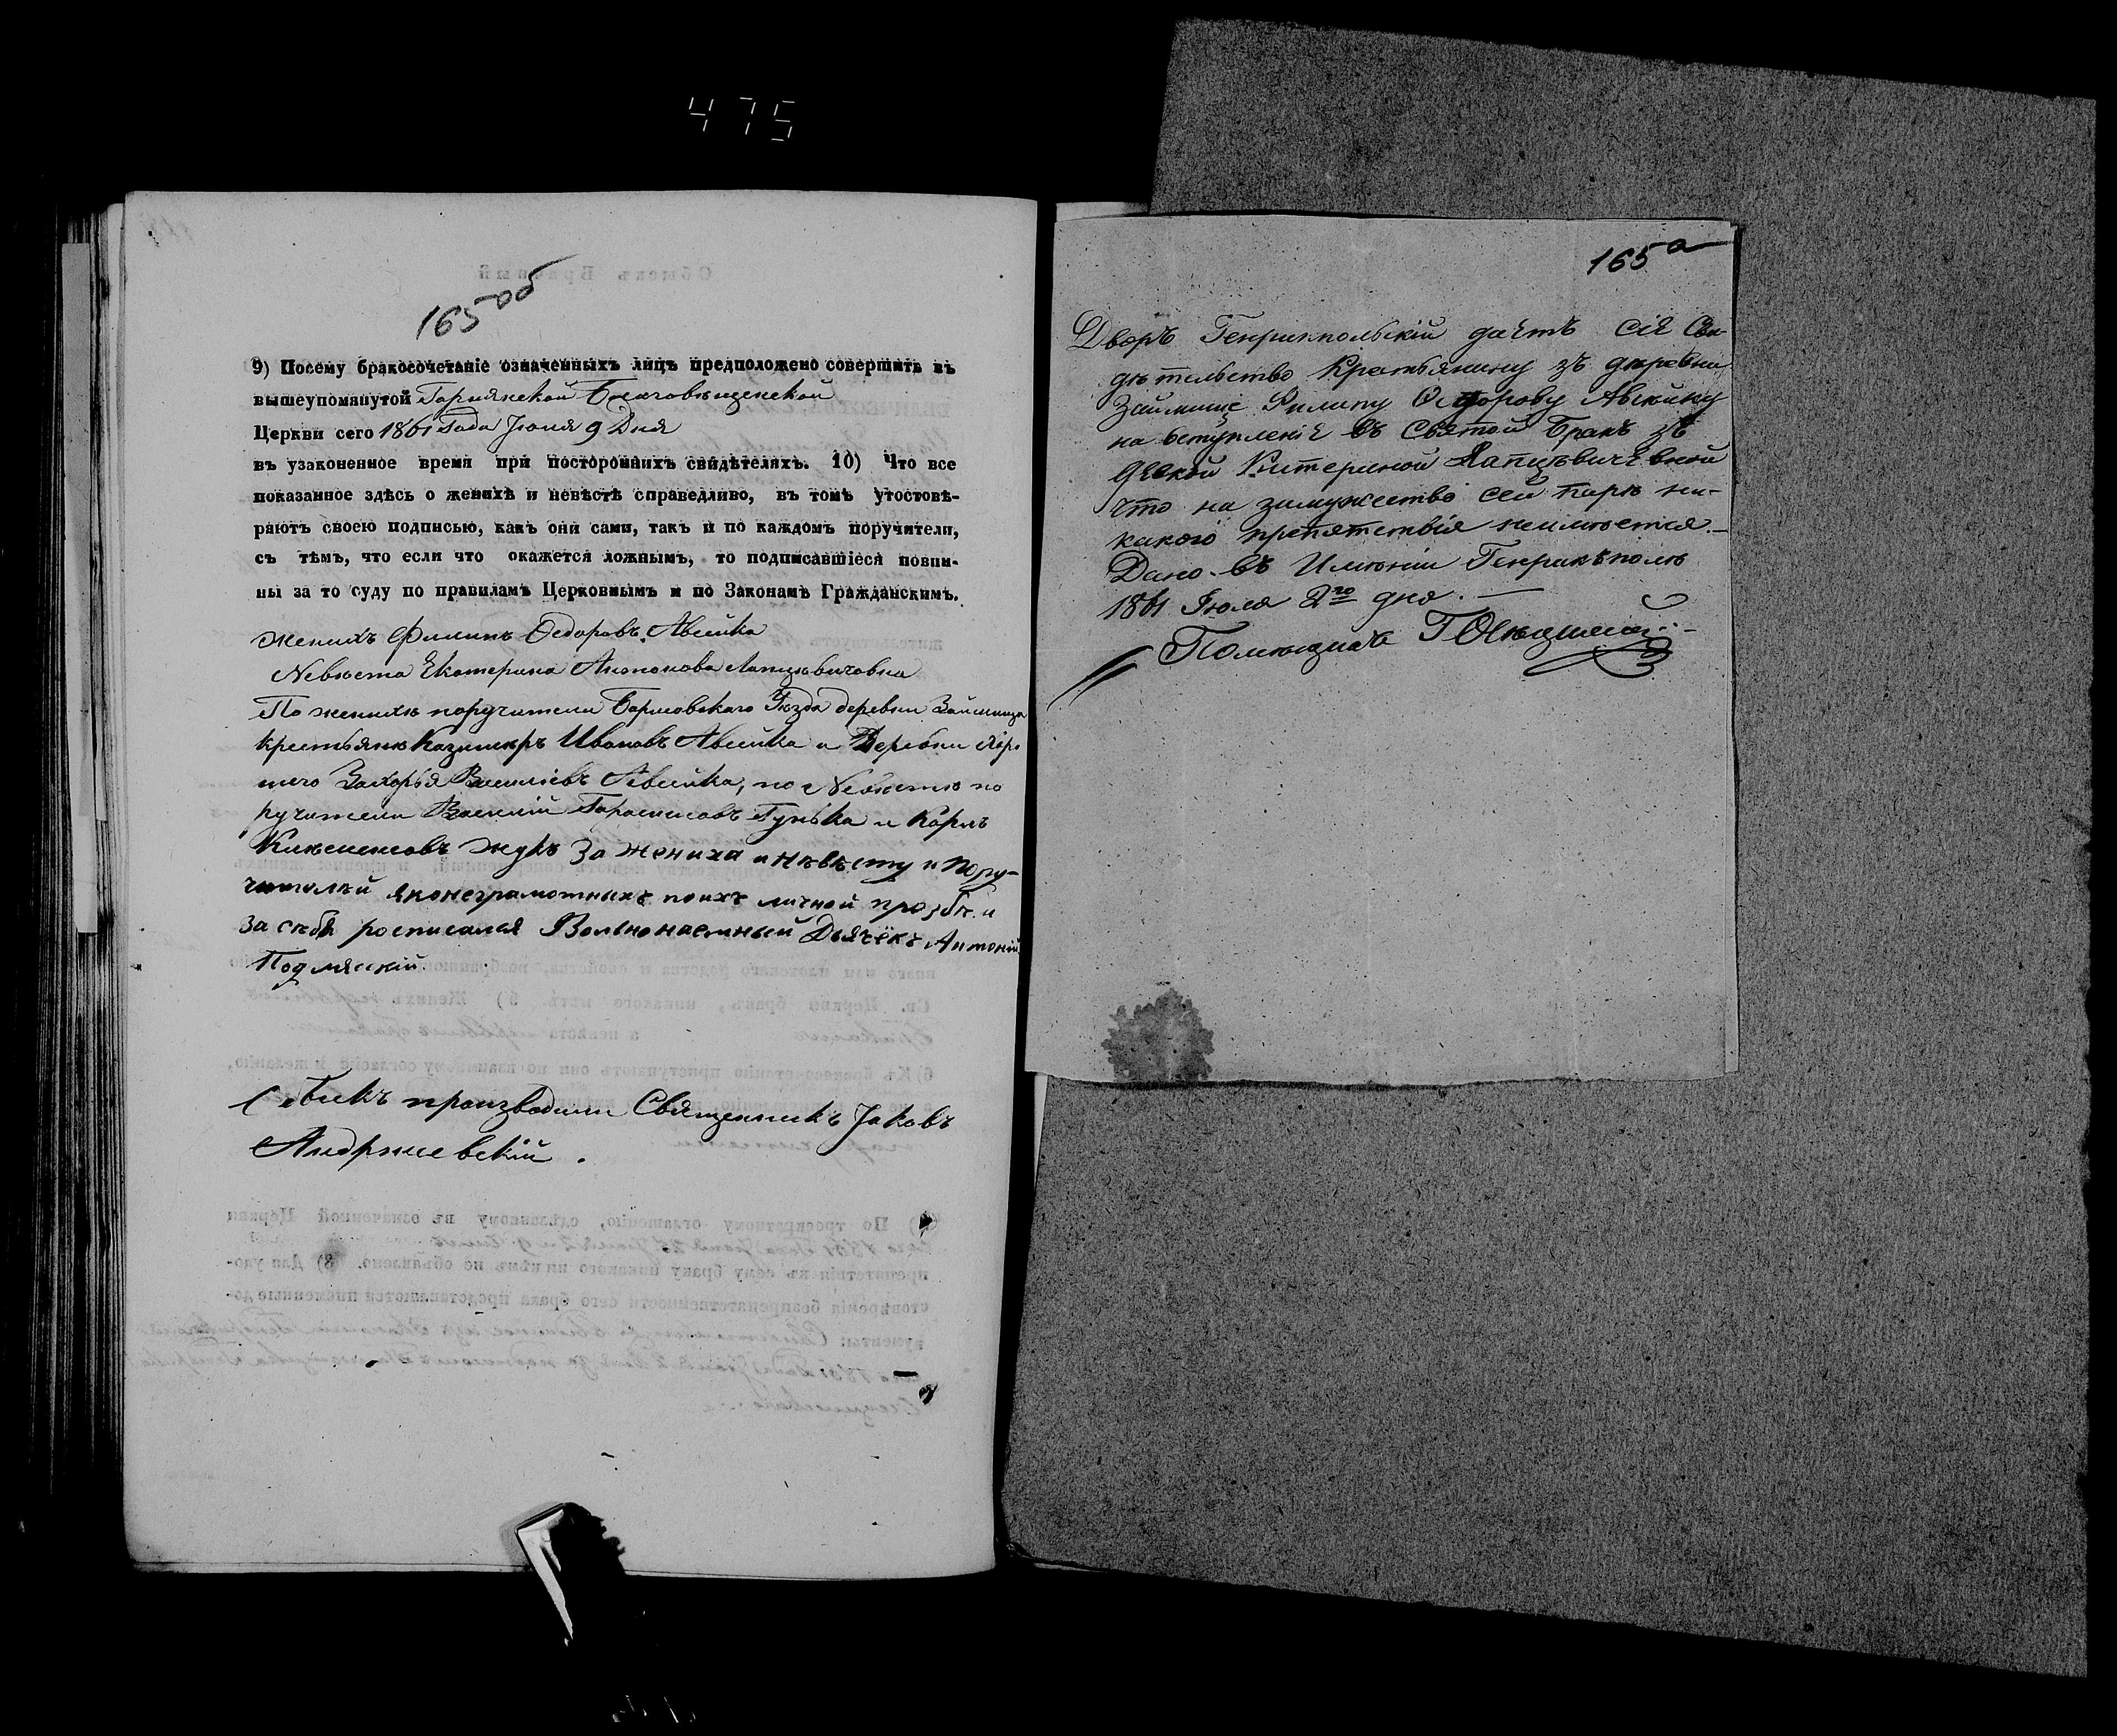 475
165 аб
9) Посему бракосочетаніе означенныхъ лицъ предположено совершить въ
вышеупомянутой Горнянской Благовѣщенской
Церкви сего 1861 Года Іюля 9 Дня
въ узаконенное время при постороннихъ свидѣтеляхъ. 10) Что все
показанное здѣсь о женихѣ и невѣстѣ справедливо, въ томъ утостовѣ-
ряютъ своею подписью, какъ они сами, такъ и по каждомъ поручители,
съ тѣмъ, что если что окажется ложнымъ, то подписавшіеся повин-
ны за то суду по правиламъ Церковнымъ и по Законамъ Гражданскимъ.
Женихъ Филипъ Ѳедоровъ Авсейка
Невѣста Екатерина Антонова
По женихѣ поручители Борисовскаго Уѣзда деревни Займища
крестьяне Казимиръ Ивановъ Авсейка и Деревни
Захорья Василіевъ Авсейка, по Невѣстѣ по
ручители Василій Гунька и Карлъ
Клеменсовъ Жукъ За жениха и невѣсту и пору-
чителей яконеграмотныхъ поихъ личной прозбѣ и
за себя росписался Вольнонаемный Дьячёкъ Антоній
Обыскъ производили Священникъ Іаковъ
Андржиевскій.
165 а
Дворъ Генрикпольскій даетъ сіе Сви-
дѣтельство Крестьянину зъ деревни
Займище Филипу Ѳедорову Авсейку
на вступленіе въ Святой Бракъ зъ
девкой Катериной
что на замужество сей паре ни-
какого препятствія неимѣется.
Дано въ Имѣніи Генрикъполѣ
1861 Іюля 2го дня.
Помѣщикъ